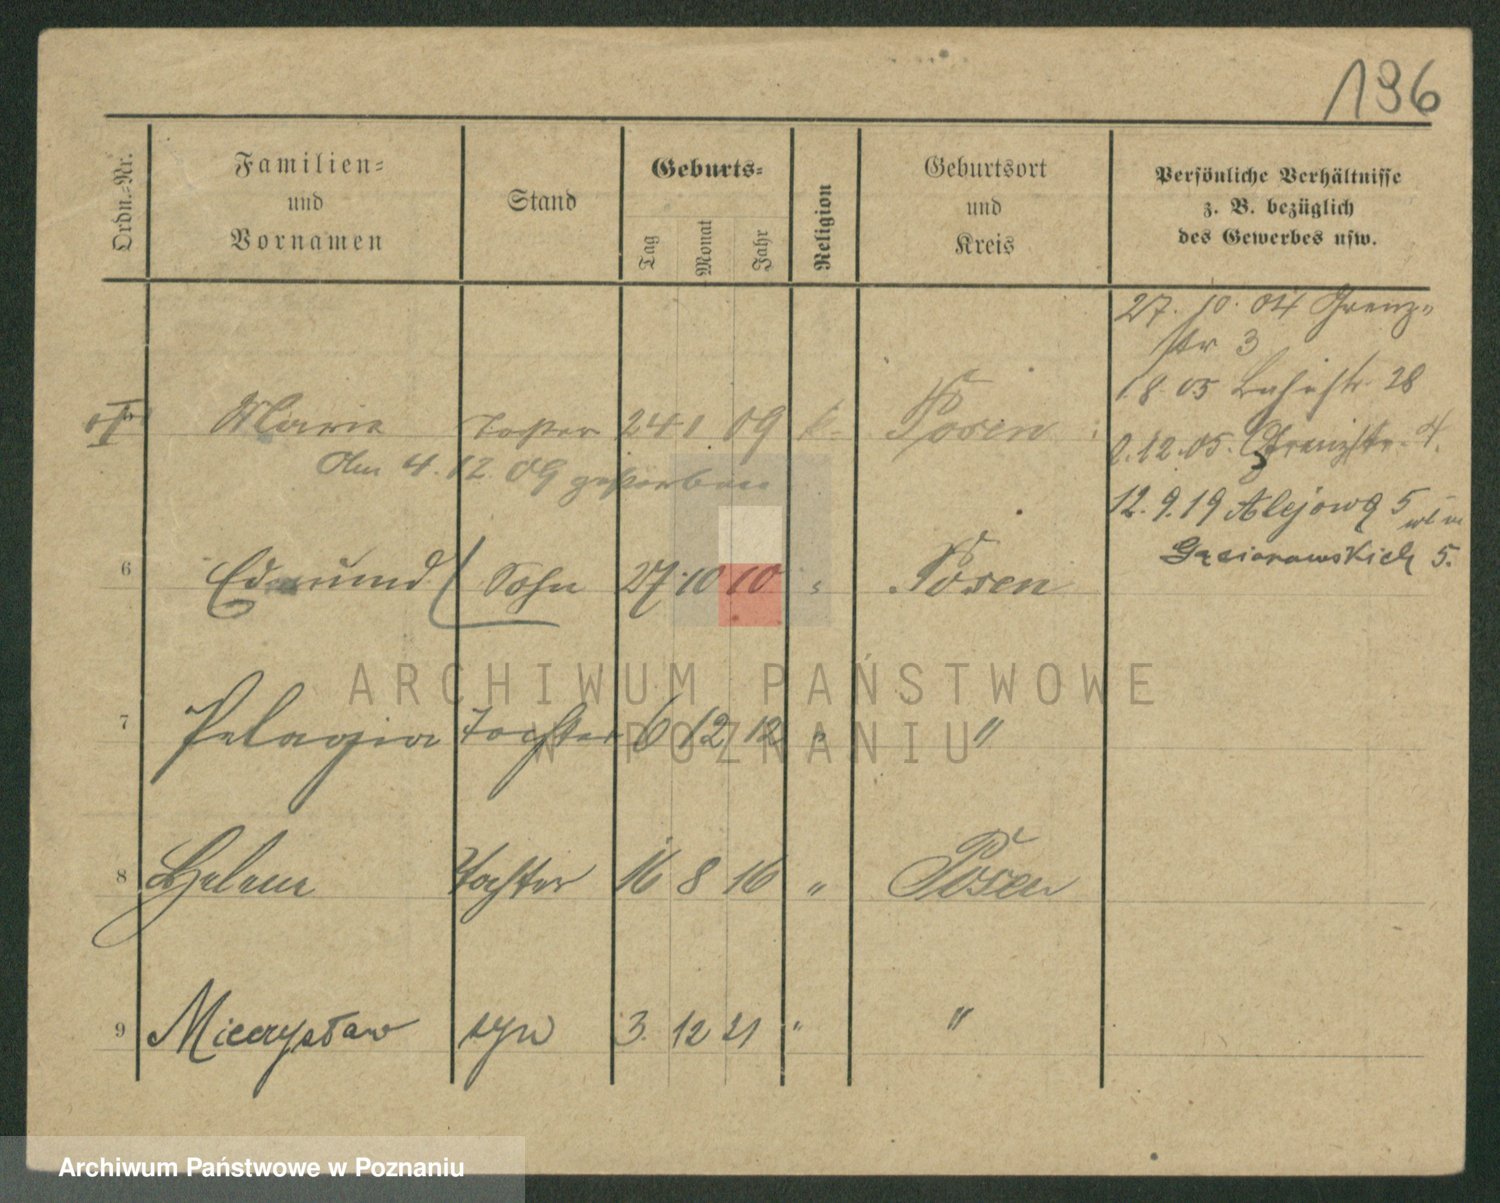 136
Ordn.-Nr. Familien- und Vornamen Stand Geburts- Tag Monat Jahr Religion Geburtsort und Kreis Persönliche Verhältnisse z. B. bezüglich des Gewerbes usw.
27. 10. 04 Grenz-
str 3
1 8 05 28
Marie Tochter 24 1 09 k. Posen
2.12.05. Grenzstr. 4.
Am 4. 12. 09 gestorben
12. 9. 19 5
Gąsiorowskich 5.
6 Edmund Sohn 27 10 10 " Posen
7 Pelagia Tochter 6 12 12 " "
8 Helene Tochter 16 8 16 " Posen
9 Mieczysław syn 3. 12 21 " "
ARCHIWUM PAŃSTWOWE
W POZNANIU
Archiwum Państwowe w Poznaniu